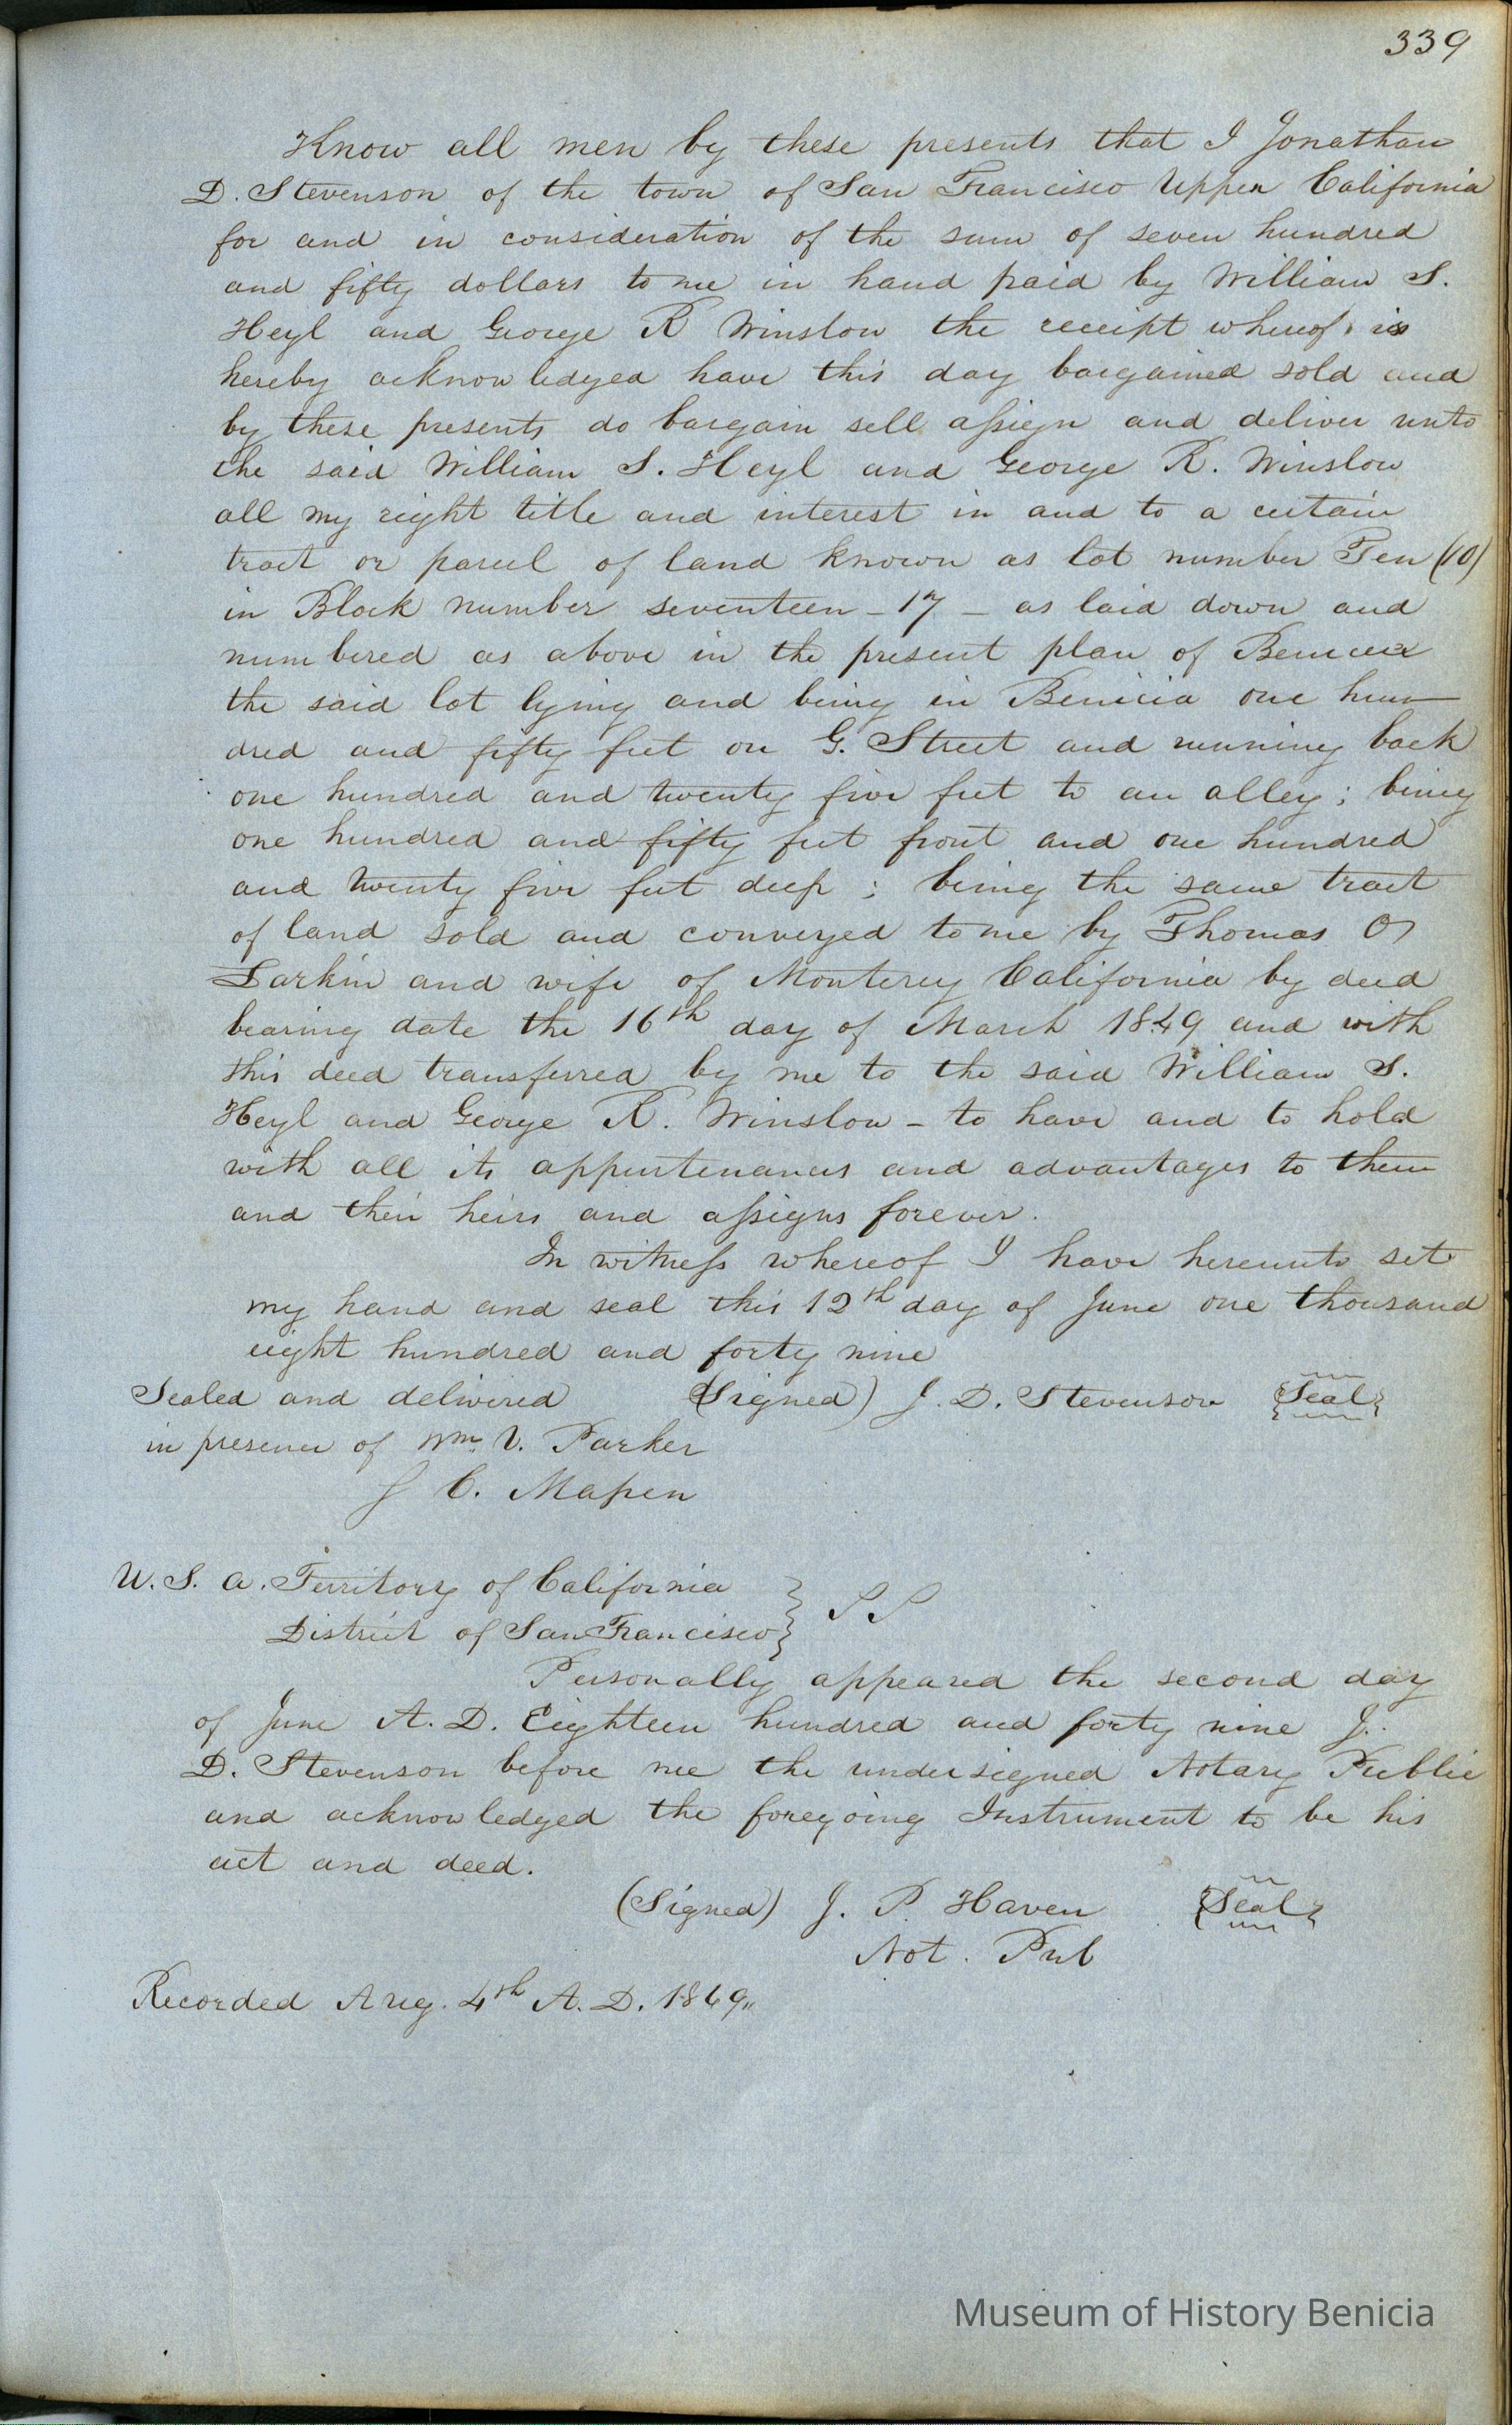 339
Know all men by these presents that I Jonathan
D. Stevenson of the town of San Francisco Upper California
for and in consideration of the sum of seven hundred
and fifty dollars to me in hand paid by William S.
Heyl and George R Winslow the receipt whereof is
hereby acknowledged have this day bargained sold and
by these presents do bargain sell assign and deliver unto
the said William S. Heyl and George R. Winslow
all my right title and interest in and to a certain
tract or parcel of land known as lot number Ten (10)
in Block number seventeen - 17 - as laid down and
numbered as above in the present plan of Benicia
the said lot lying and being in Benicia one hun
dred and fifty feet on G. Street and running back
one hundred and twenty five feet to an alley; being
one hundred and fifty feet front and one hundred
and twenty five feet deep; being the same tract
of land sold and conveyed to me by Thomas O
Larkin and wife of Monterey California by deed
bearing date the 16th day of March 1849 and with
this deed transferred by me to the said William S.
Heyl and George R. Winslow - to have and to hold
with all its appurtenances and advantages to them
and their heirs and assigns forever.
In witness whereof I have hereunto set
my hand and seal this 12th day of June one thousand
eight hundred and forty nine
Sealed and delivered (Signed) J. D. Stevenson {Seal}
in presence of Wm. V. Parker
J C. Mapen
U. S. A. Territory of California
District of San Francisco } SS
Personally appeared the second day
of June A. D. Eighteen hundred and forty nine J.
D. Stevenson before me the undersigned Notary Public
and acknowledged the foregoing Instrument to be his
act and deed.
(Signed) J. P. Haven {Seal}
Not. Pub
Recorded Aug. 4th A. D. 1849"
Museum of History Benicia